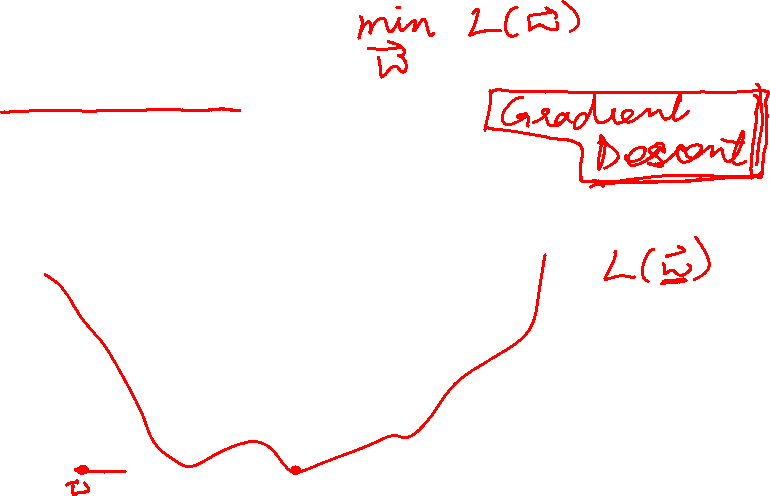 min L(w⃗)
w⃗
Gradient
Descent
L(w⃗)
w